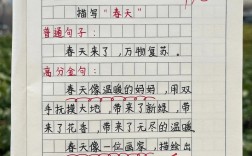 描写"春天"
普通句子：
春天来了，万物复苏。
高分金句：
春天像温暖的妈妈，用双
手抚摸大地，带来了新绿，带
来了花香，带来了无尽的温暖
春天像一位画家，描绘出